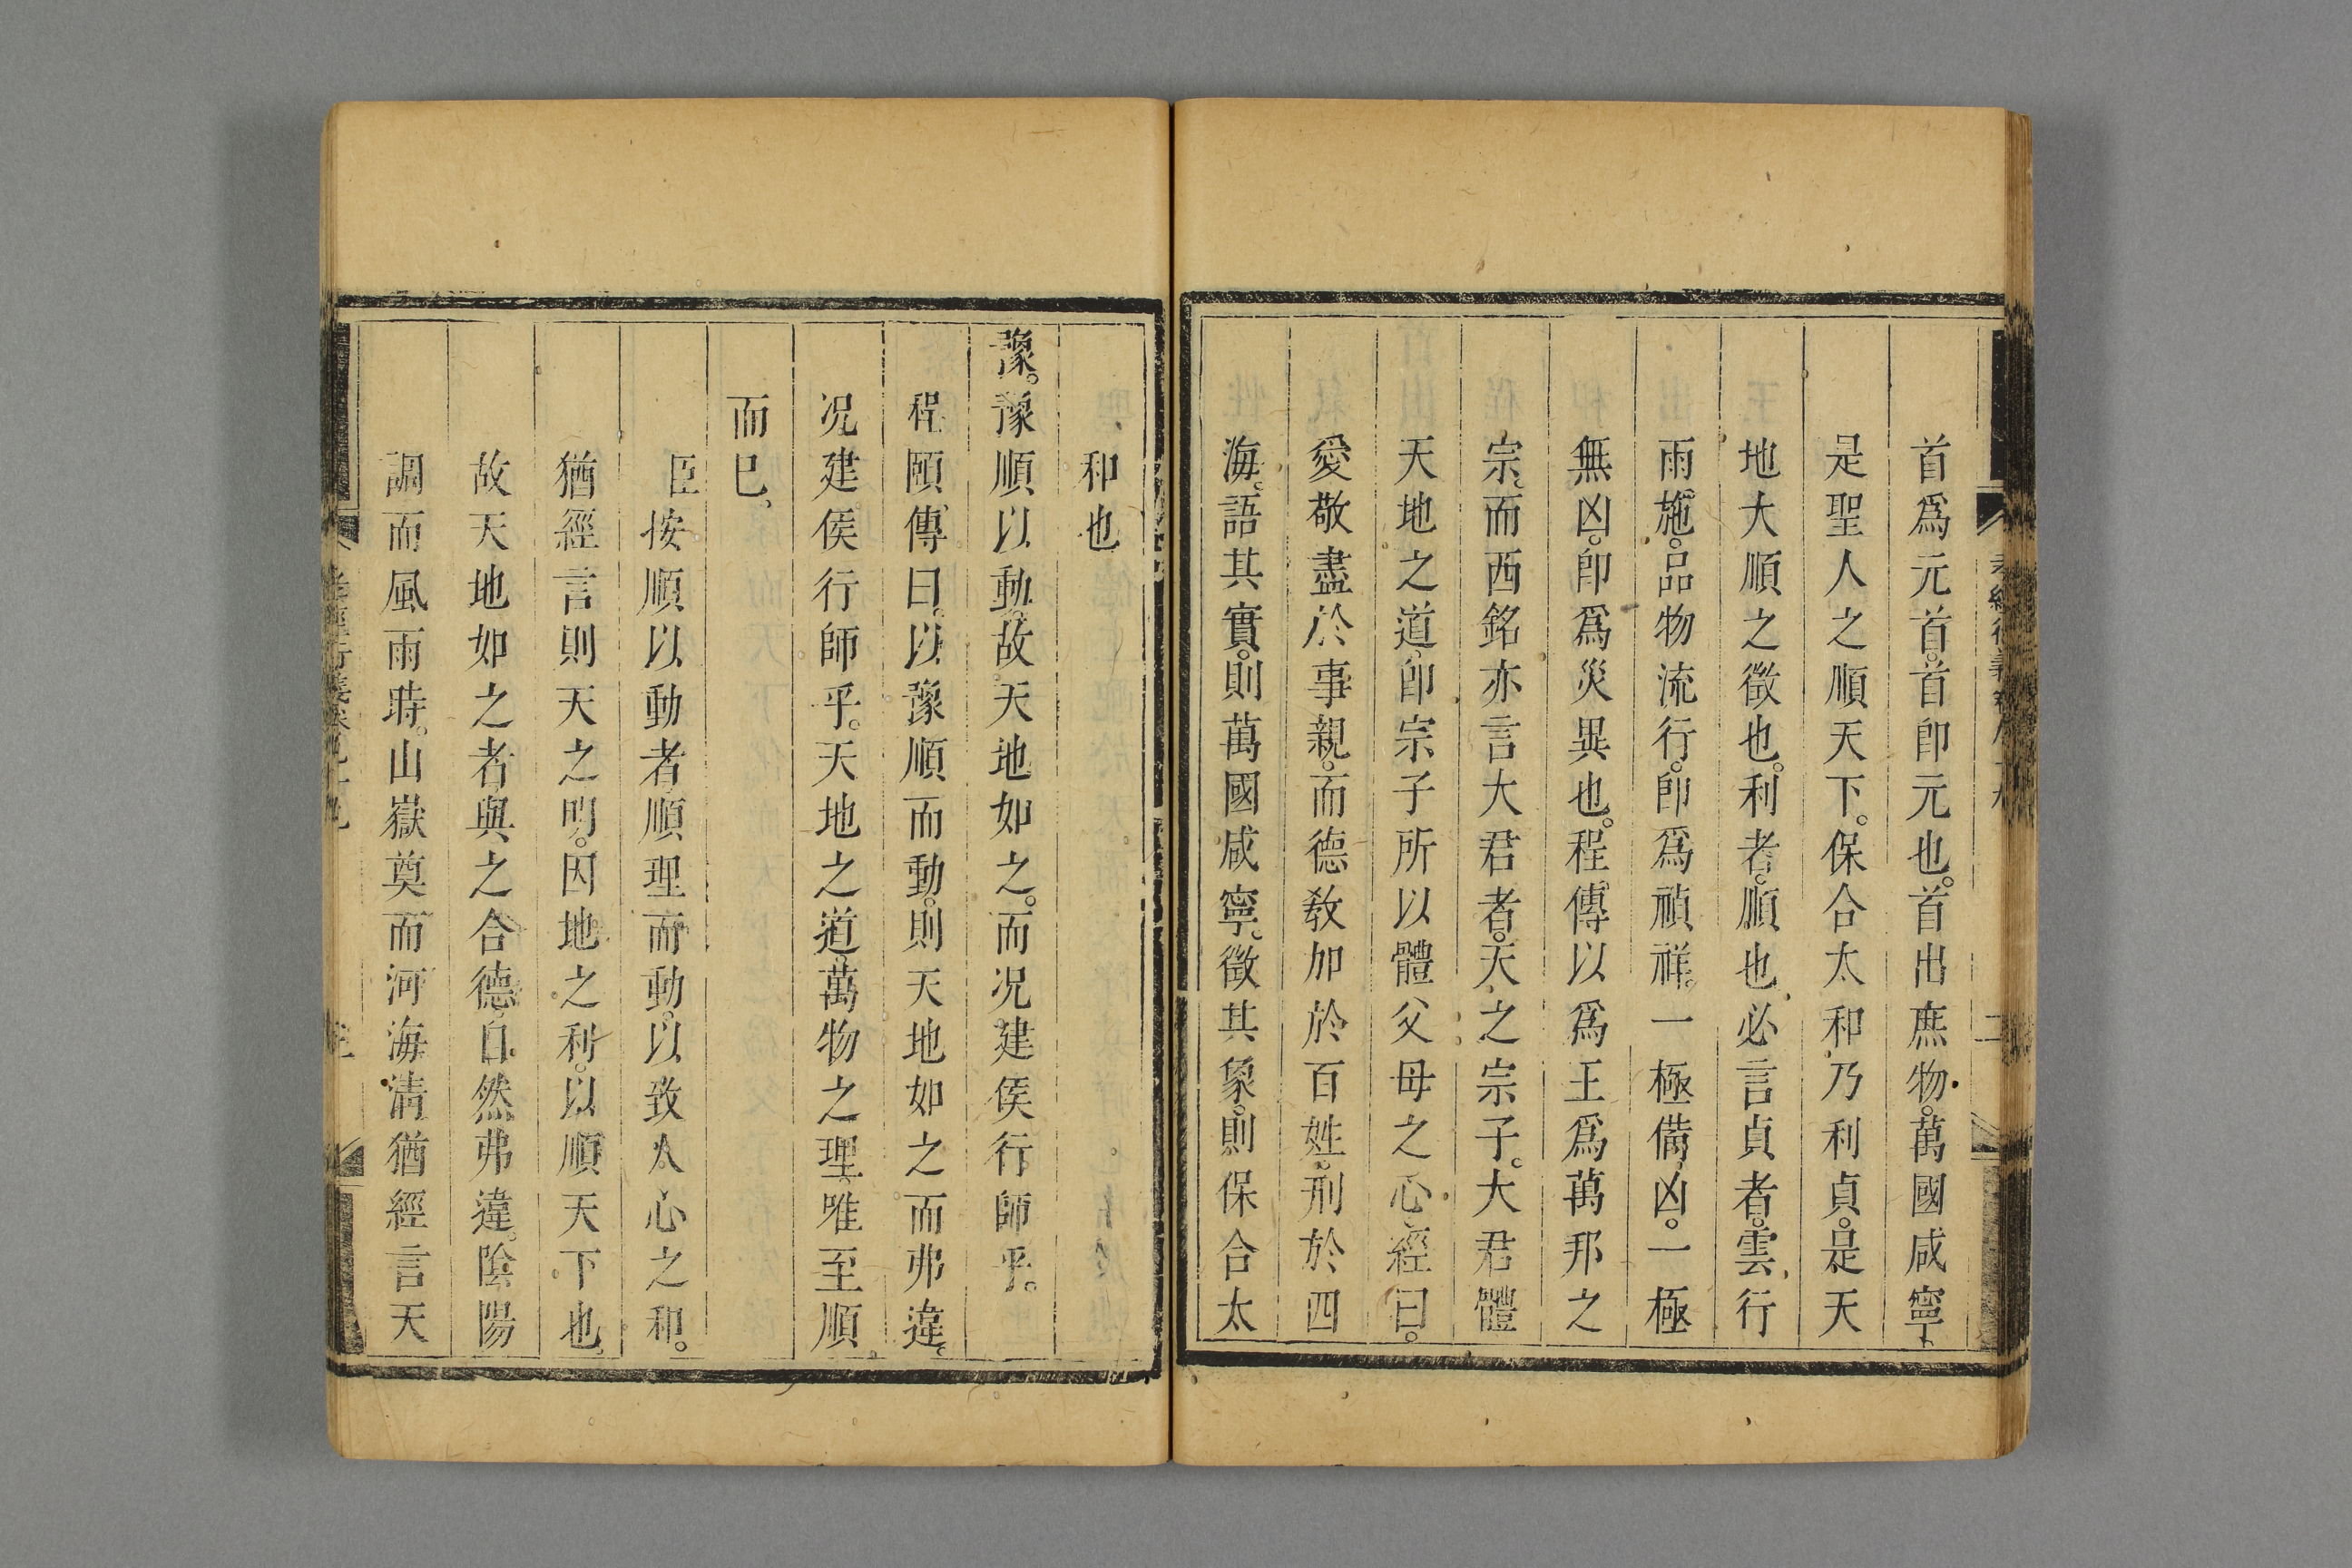 首爲元首。首卽元也。首出庶物。萬國咸寧、
是聖人之順天下。保合太和乃利貞。是天
地大順之徵也。利者。順也必言貞者。雲行
雨施。品物流行。卽爲禎祥。一極備凶。一極
無凶。卽爲災異也。程傳以爲王爲萬邦之
宗、而西銘亦言大君者。天之宗子。大君體
天地之道。卽宗子所以體父母之心。經曰。
愛敬盡於事親。而德教加於百姓。刑於四
海。語其實。則萬國咸寧。徵其象。則保合太
和也
豫。豫順以動。故天地如之。而况建侯行師乎。
程頤傳曰。以豫順而動。則天地如之而弗違。
况建侯行師乎。天地之道、萬物之理、唯至順
而已、
臣按順以動者、順理而動。以致人心之和。
猶經言則天之明。因地之利。以順天下也。
故天地如之者、與之合德。自然弗違。陰陽
調而風雨時。山嶽奠而河海清猶經言天
孝經衍義卷九十九